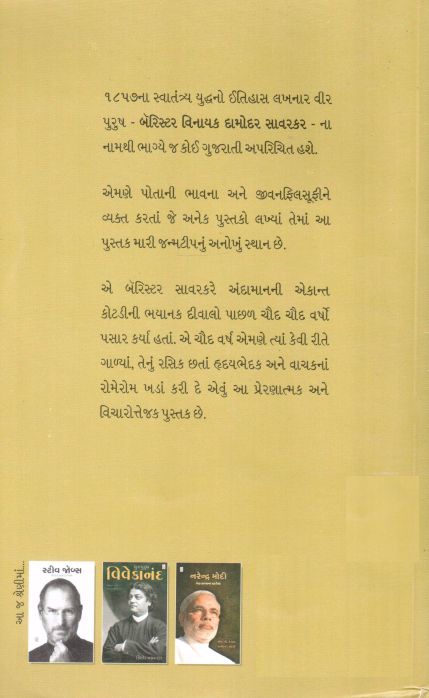 ૧૮૫૭ના સ્વાતંત્ર્ય યુદ્ધનો ઈતિહાસ લખનાર વીર
પુરુષ - બૅરિસ્ટર વિનાયક દામોદર સાવરકર - ના
નામથી ભાગ્યે જ કોઈ ગુજરાતી અપરિચિત હશે.
એમણે પોતાની ભાવના અને જીવનફિલસૂફીને
વ્યક્ત કરતાં જે અનેક પુસ્તકો લખ્યાં તેમાં આ
પુસ્તક મારી જન્મટીપનું અનોખું સ્થાન છે.
એ બૅરિસ્ટર સાવરકરે અંદામાનની એકાન્ત
કોટડીની ભયાનક દીવાલો પાછળ ચૌદ ચૌદ વર્ષો
પસાર કર્યાં હતાં. એ ચૌદ વર્ષ એમણે ત્યાં કેવી રીતે
ગાળ્યાં, તેનું રસિક છતાં હૃદયભેદક અને વાચકનાં
રોમેરોમ ખડાં કરી દે એવું આ પ્રેરણાત્મક અને
વિચારોત્તેજક પુસ્તક છે.
આ જ શ્રેણીમાં...
સ્ટીવ જોબ્સ
વિવેકાનંદ
નરેન્દ્ર મોદી